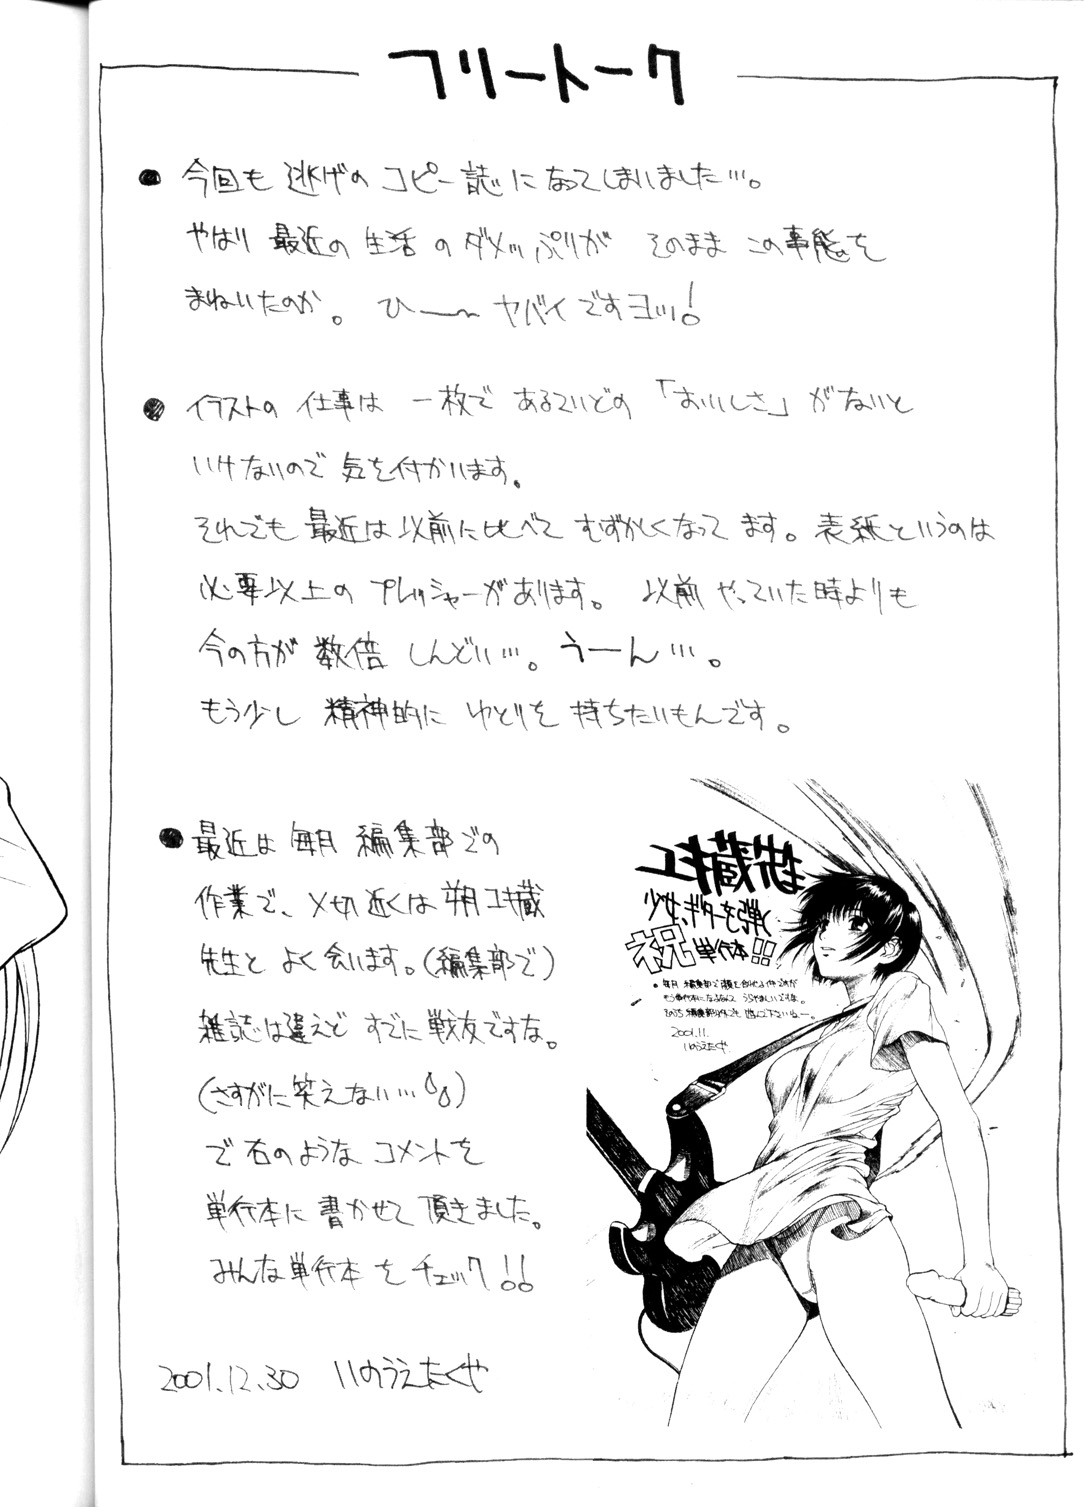 フリートーク
● 今回も 逃げの コピー誌に なってしまいました…。
やはり 最近の 生活 の ダメっぷりが そのまま この事態を
まねいたのか。 ひ〜〜 ヤバイですヨッ!
● イラストの 仕事は 一枚で あるていどの 「おいしさ」がないと
いけないので 気を付かいます。
それでも 最近は 以前に比べて むずかしくなって ます。表紙というのは
必要以上の プレッシャーがあります。 以前 やっていた時よりも
今の方が 数倍 しんどい…。うーん…。
もう少し 精神的に ゆとりを 持ちたいもんです。
● 最近は 毎月 編集部での
作業で、〆切近くは 朔ユキ蔵
先生と よく会います。(編集部で)
雑誌は違えど すでに 戦友ですな。
(さすがに笑えない…)
で 右のような コメントを
単行本に 書かせて 頂きました。
みんな単行本 を チェック!!
2001.12.30 いのうえたくや
ユキ蔵先生
少女、ギターを弾く
祝 単行本!!
● 毎月 編集部で顔を合わせる仲ですが
もう単行本になるなんて うらやましいですな。
2001.11.
いのうえたくや